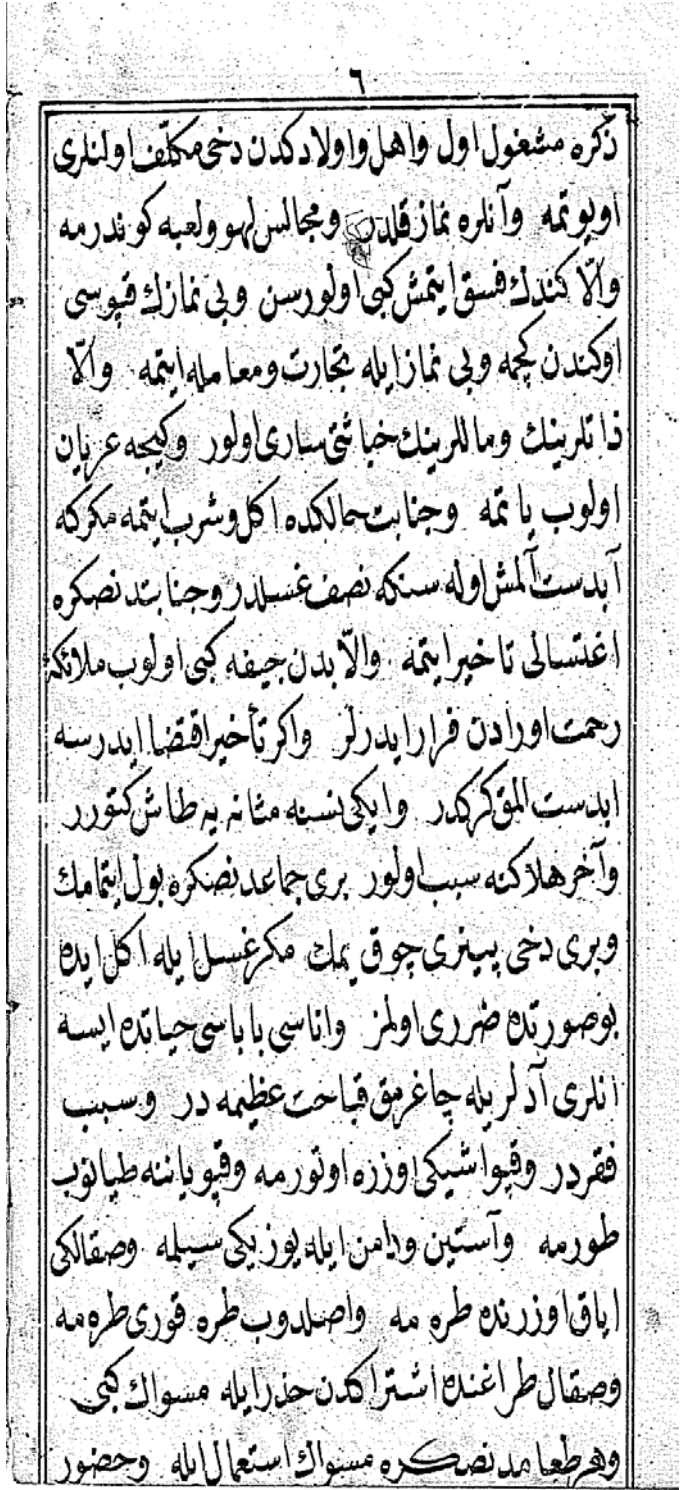 ٦
ذكره مشغول اول واهل واولادكدن دخی مكلّف اولنلری
اویوتمه وآنلره نماز قلدر ومجالس لهو ولعبه كوندرمه
والّا كندك فسق ایتمش كبی اولورسن وبی نمازك قپوسی
اوكندن كچمه وبی نماز ایله تجارت ومعامله ایتمه والّا
ذاتلرینك وماللرینك خباثتی ساری اولور وكیجه عریان
اولوب یاتمه وجنابت حالكده اكل وشرب ایتمه مكركه
آبدست آلمش اوله سنكه نصف غسلدر وجنابتدنصكره
اغتسالی تاخیر ایتمه والّا بدن جیفه كبی اولوب ملائكهٔ
رحمت اورادن فرار ایدرلر واكر تأخیر اقتضا ایدرسه
ابدست المق كركدر وایكی نسنه مثانه یه طاش كتورر
وآخر هلاكنه سبب اولور بری جماعدنصكره بول ایتمامك
وبری دخی پینری چوق یمك مكر غسل ایله اكل ایده
بوصورتده ضرری اولمز واناسی باباسی حیاتده ایسه
انلری آدلریله چاغرمق قباحت عظیمه در وسبب
فقردر وقپو اشیكی اوزره اوتورمه وقپو یاننه طیانوب
طورمه وآستین ودامن ایله یوزیكی سیلمه وصقالكی
ایاق اوزرنده طره مه واصلدوب طره قوری طره مه
وصقال طراغنده اشتراكدن حذر ایله مسواك كبی
وهر طعامدنصكره مسواك استعمال ایله وحضور